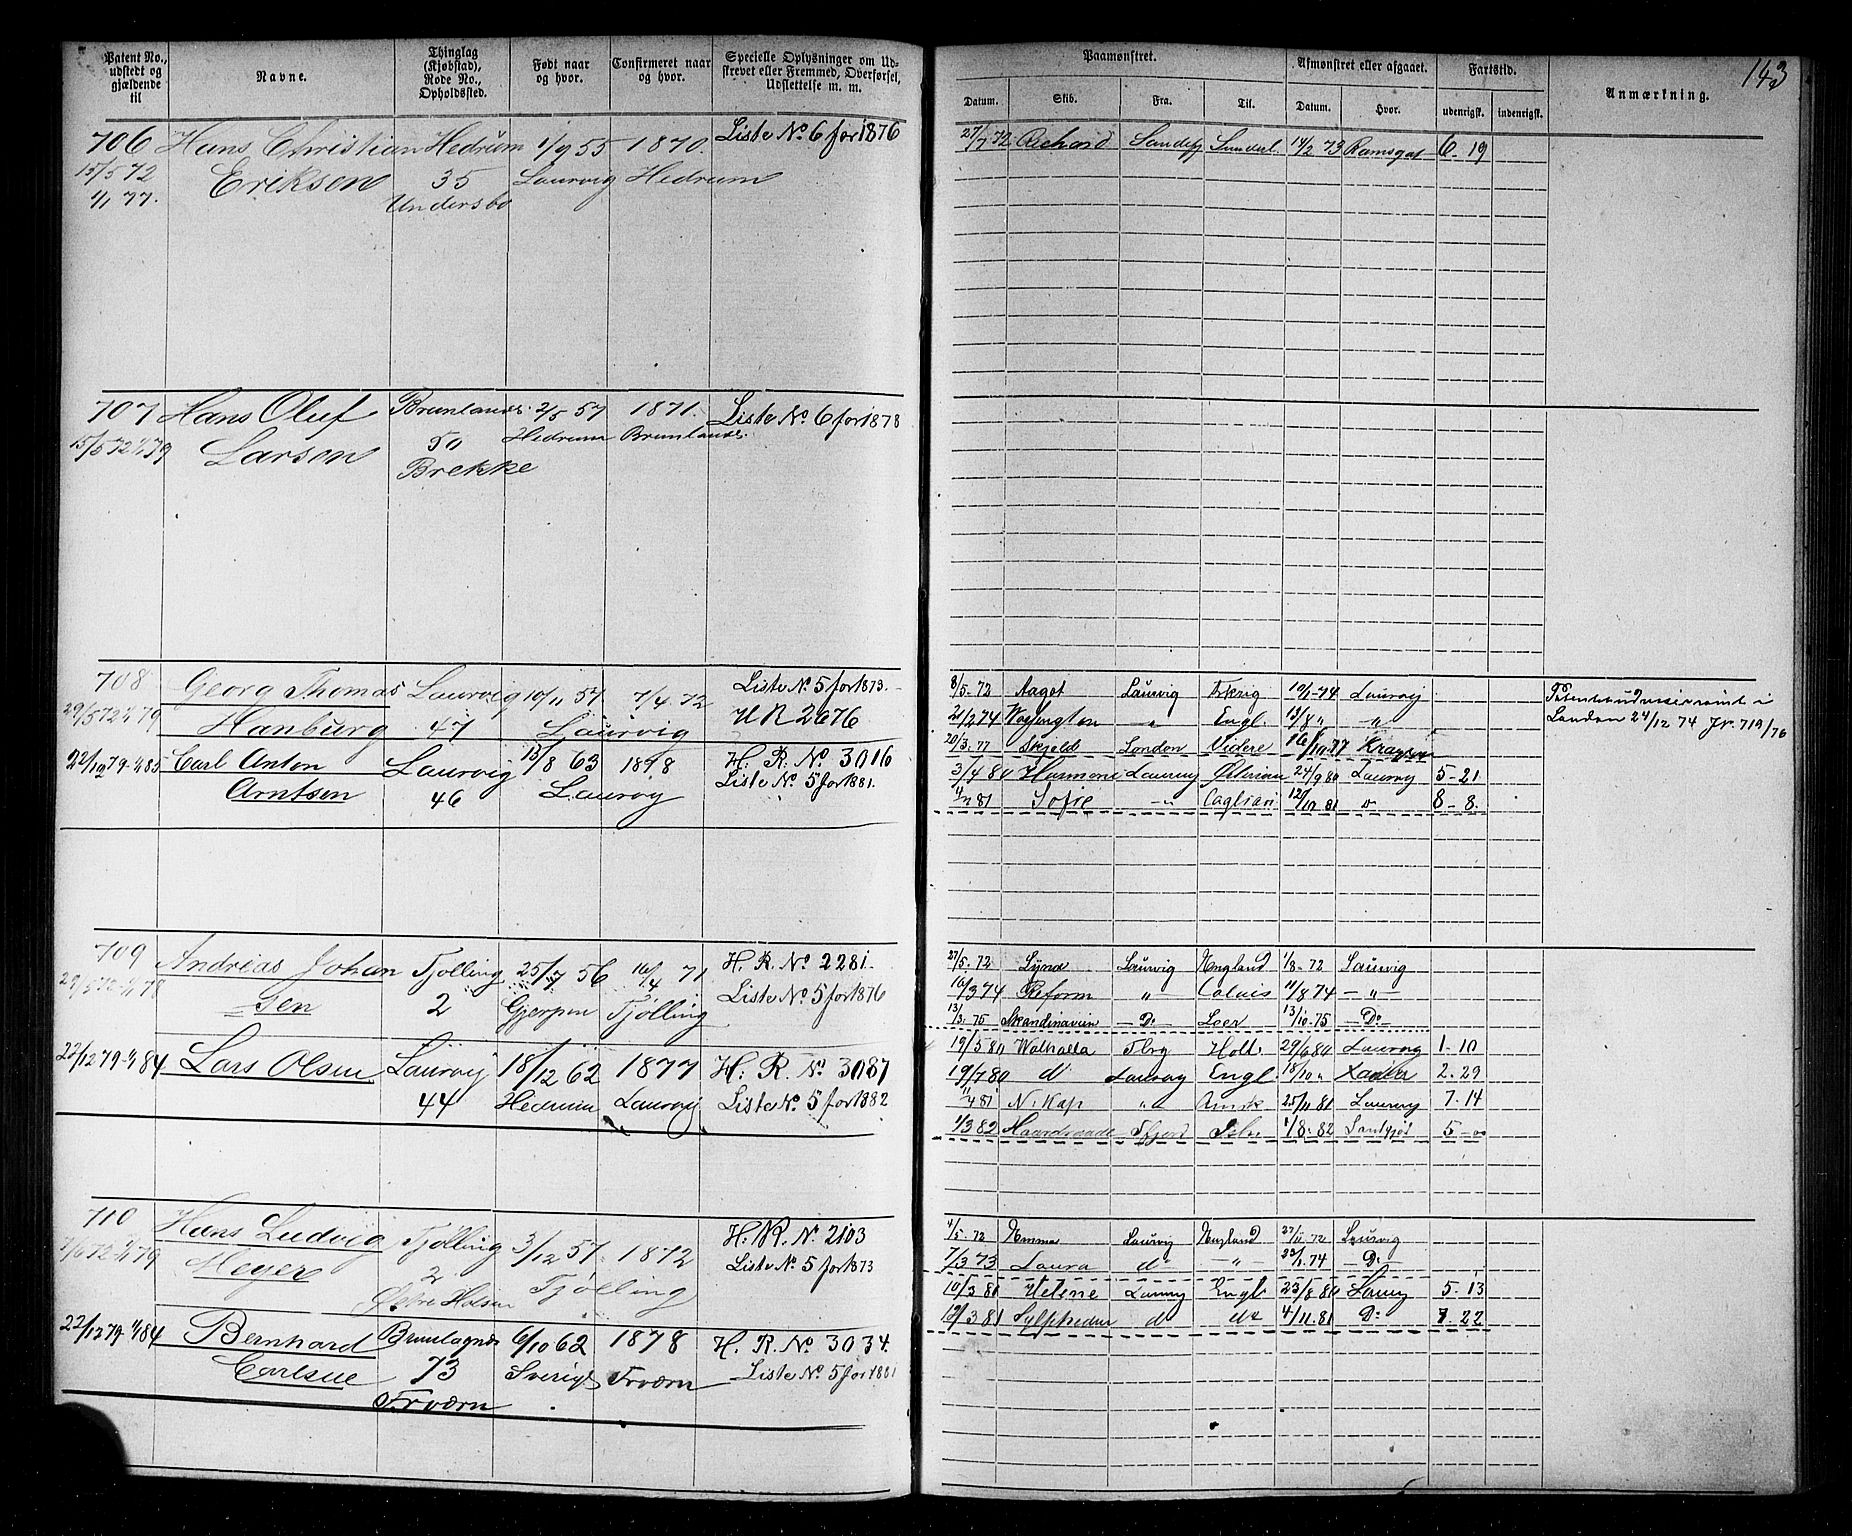 143
Patent No., udstedt og gjældende til
Navne.
Thinglag (Kjøbstad), Rode No., Opholdssted.
Født naar og hvor.
Confirmeret naar og hvor.
Specielle Oplysninger om Udskrevet eller Fremmed, Overførsel, Udslettelse m. m.
Paamønstret.
Afmønstret eller afgaaet.
Fartstid.
Anmærkning.
Datum. Skib. Fra. Til. Datum. Hvor. udenrigsk. indenrigsk.
706 Hans Christian Hedrum 1/9 55 1870. Liste No. 6 for 1876
15/5 72 Eriksen 35 Laurvig Hedrum
1/1 77. Undersbo
27/7 72 Richard Sandefj Sunderl. 14/2 73 Ramsgat 6-19
707 Hans Oluf Brunlands. 2/5 57 1871. Liste No. 6 for 1878
15/5 72 1/1 79 Larsen 50 Hedrum Brunlands.
Brekke
708 Georg Thomas Laurvig 10/11 57 7/4 72 Liste No. 5 for 1873.
29/5 72 1/1 79 Hanburg 47 Laurvig H R 2676
22/12 79 1/1 85 Carl Anton Laurvig 15/8 63 1878 H. R. No. 3016
Arntsen 46 Laurvig Liste No. 5 for 1881.
8/5-72 Aagot Laurvig 10/1-74 Laurvig
21/2 74 Engl. 13/8 " "
20/3.77 Skjold London Videre 16/10-77 Kragerø
3/4 80 Harmonie Laurvig 24/9 80 Laurvig 5-21
81 Sofie -"- Cagliari 12/12 81 " 8-8.
London 24/12 74 Jr. 719/76
709 Andreas Johan Tjølling 25/7 56 16/4 71 H. R. No. 2281.
29/5 72 1/1 78 sen 2 Gjerpen Tjølling Liste No. 5 for 1876
22/12 79 1/1 84 Lars Olsen Laurvig 18/12 62 1877 H. R. No. 3087
44 Hedrum Laurvig Liste No. 5 for 1882
27/5.72 Laurvig England 1/8-72 Laurvig
16/3 74 Reform " Calais 11/8 74 -"-
13/3.75 Skandinavien -Do- Leer 13/10.75 -Do-
19/5 80 Walhalla Tbrg Holl. 29/6 80 Laurvig 1-10
19/7 80 do Laurvig Engl 18/10 " 2-29
81 N. Kap " Amst. 25/11 81 Laurvig 7-14
1/3 82 1/8-82 Sandefjord 5-00
710 Hans Ludvig Tjølling 3/12 57 1872 H. R. No. 2103
7/6 72 1/1 79 Meyer 2 Tjølling Liste No. 5 for 1873
Østre Halsen
22/12 79 1/1 84 Bernhard Brunlagnæs 6/10 62 1878 H. R. No. 3034.
Carlsen 73 Sverige Fredværn Liste No. 5 for 1881
4/5.72 Emma Laurvig England 27/11 72 Laurvig
7/3 73 Laura do -"- 22/1.74 -Do-
10/3 80 Helene Laurvig Engl 23/8 80 Laurvig 5-13
12/3 81 Sylpheden do do 4/11.81 Do 7-22